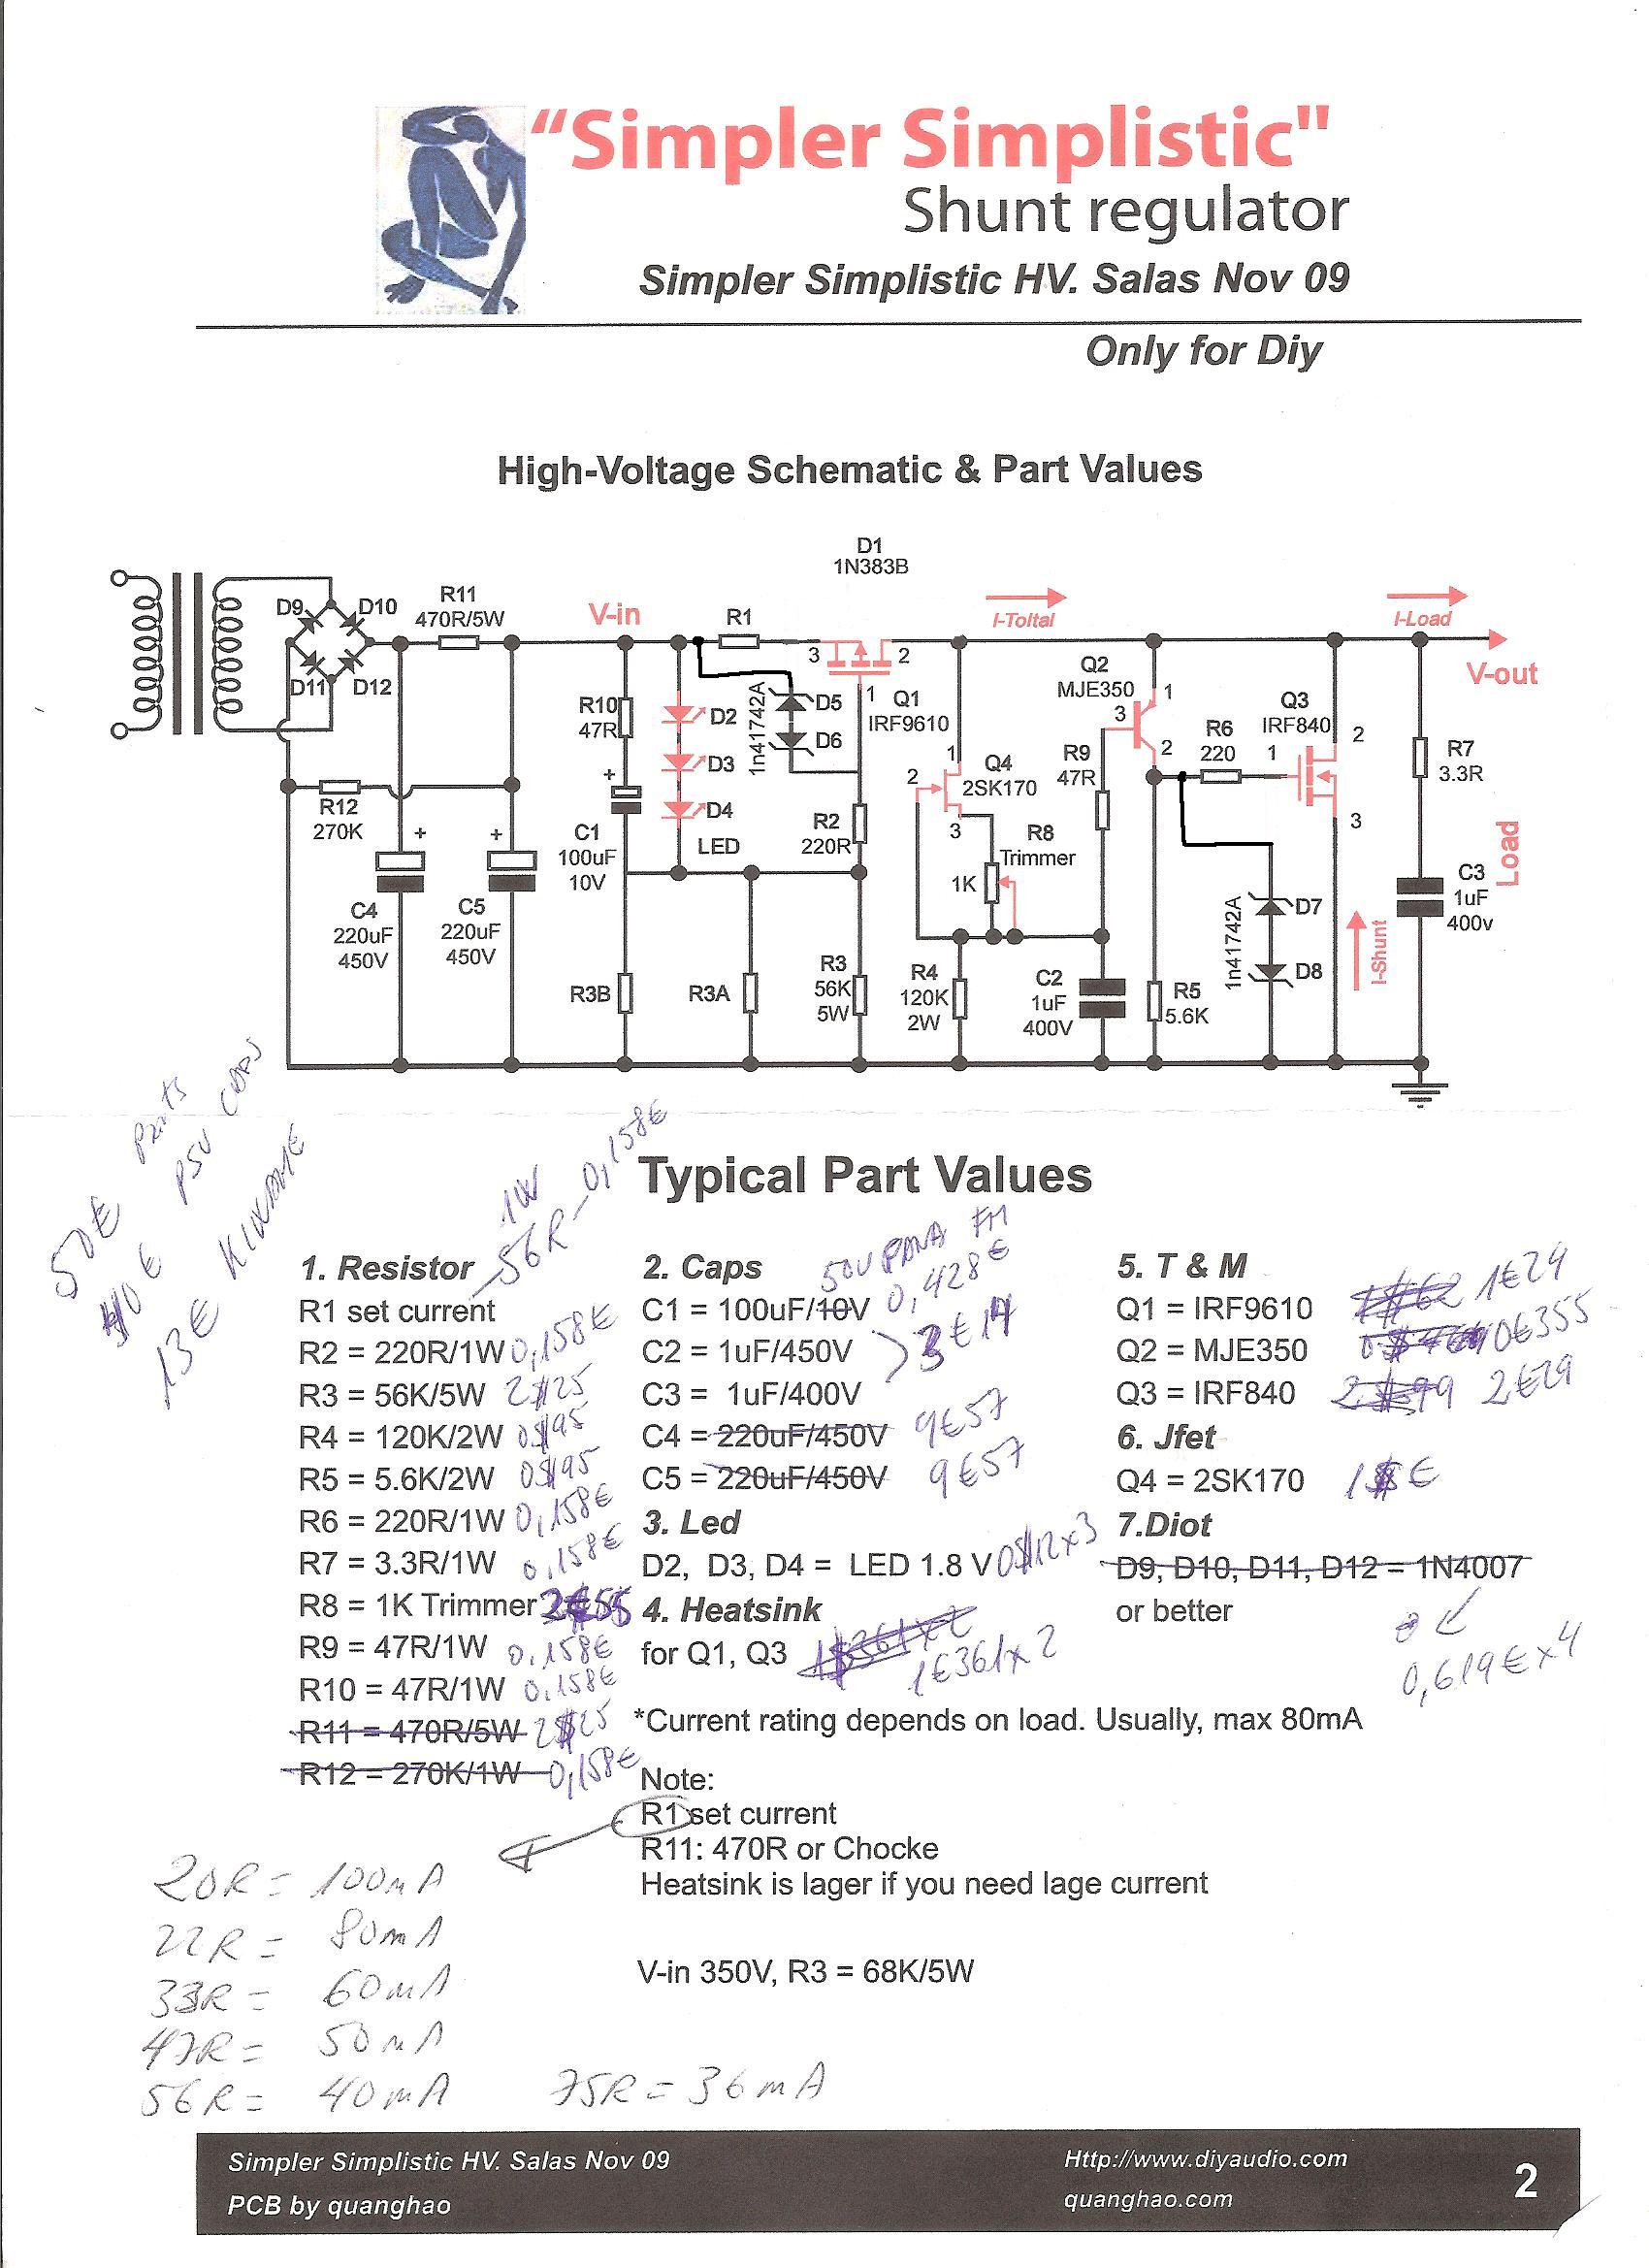 “Simpler Simplistic"
Shunt regulator
Simpler Simplistic HV. Salas Nov 09
Only for Diy
High-Voltage Schematic & Part Values
D1
1N383B
D9
D10
D11
D12
R11
470R/5W
V-in
R1
3
2
1
I-Toltal
I-Load
V-out
R12
270K
+
+
C4
220uF
450V
C5
220uF
450V
R10
47R
+
C1
100uF
10V
D2
D3
D4
LED
1n41742A
D5
D6
Q1
IRF9610
R2
220R
R3B
R3A
R3
56K
5W
1
2
3
Q4
2SK170
R8
Trimmer
1K
R4
120K
2W
Q2
MJE350
1
3
2
R9
47R
C2
1uF
400V
R5
5.6K
R6
220
Q3
IRF840
1
2
3
1n41742A
D7
D8
I-Shunt
R7
3.3R
C3
1uF
400v
Load
50€ Parts
10€ PSU CAPS
13€
Typical Part Values
1W
56R - 0,158€
1. Resistor
R1 set current
R2 = 220R/1W 0,158€
R3 = 56K/5W 2$25
R4 = 120K/2W 0$195
R5 = 5.6K/2W 0$195
R6 = 220R/1W 0,158€
R7 = 3.3R/1W 0,158€
R8 = 1K Trimmer
R9 = 47R/1W 0,158€
R10 = 47R/1W 0,158€
R11 = 470R/5W 2$25
R12 = 270K/1W 0,158€
2. Caps 50V PANA FM
C1 = 100uF/10V 0,428€
C2 = 1uF/450V 3€14
C3 = 1uF/400V
C4 = 220uF/450V 9€57
C5 = 220uF/450V 9€57
3. Led
D2, D3, D4 = LED 1.8 V 0$12x3
4. Heatsink
for Q1, Q3 1$361x2
1€361x2
5. T & M
Q1 = IRF9610 1€29
Q2 = MJE350 0€355
Q3 = IRF840 2€29
6. Jfet
Q4 = 2SK170 1€
7.Diot
D9, D10, D11, D12 = 1N4007
or better
0,619€x4
*Current rating depends on load. Usually, max 80mA
Note:
R1 set current
R11: 470R or Chocke
Heatsink is lager if you need lage current
V-in 350V, R3 = 68K/5W
20R = 100mA
22R = 80mA
33R = 60mA
47R = 50mA
56R = 40mA
75R = 36mA
Simpler Simplistic HV. Salas Nov 09
PCB by quanghao
Http://www.diyaudio.com
quanghao.com
2